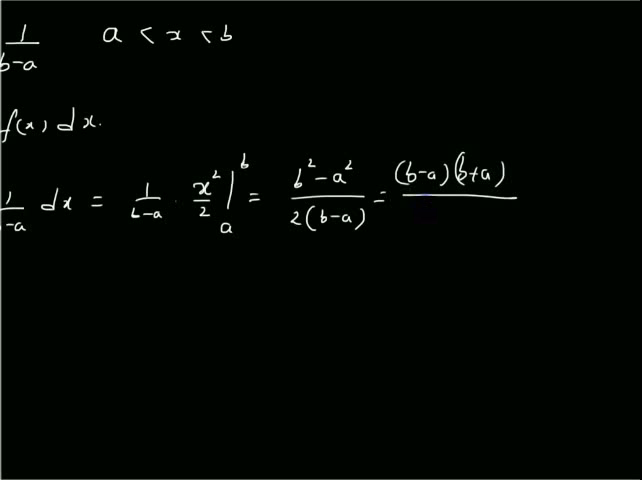 1/(b-a) a < x < b
f(x) dx.
1/(b-a) dx = 1/(b-a) · x²/2 |ₐᵇ = (b² - a²)/(2(b-a)) = (b-a)(b+a)/